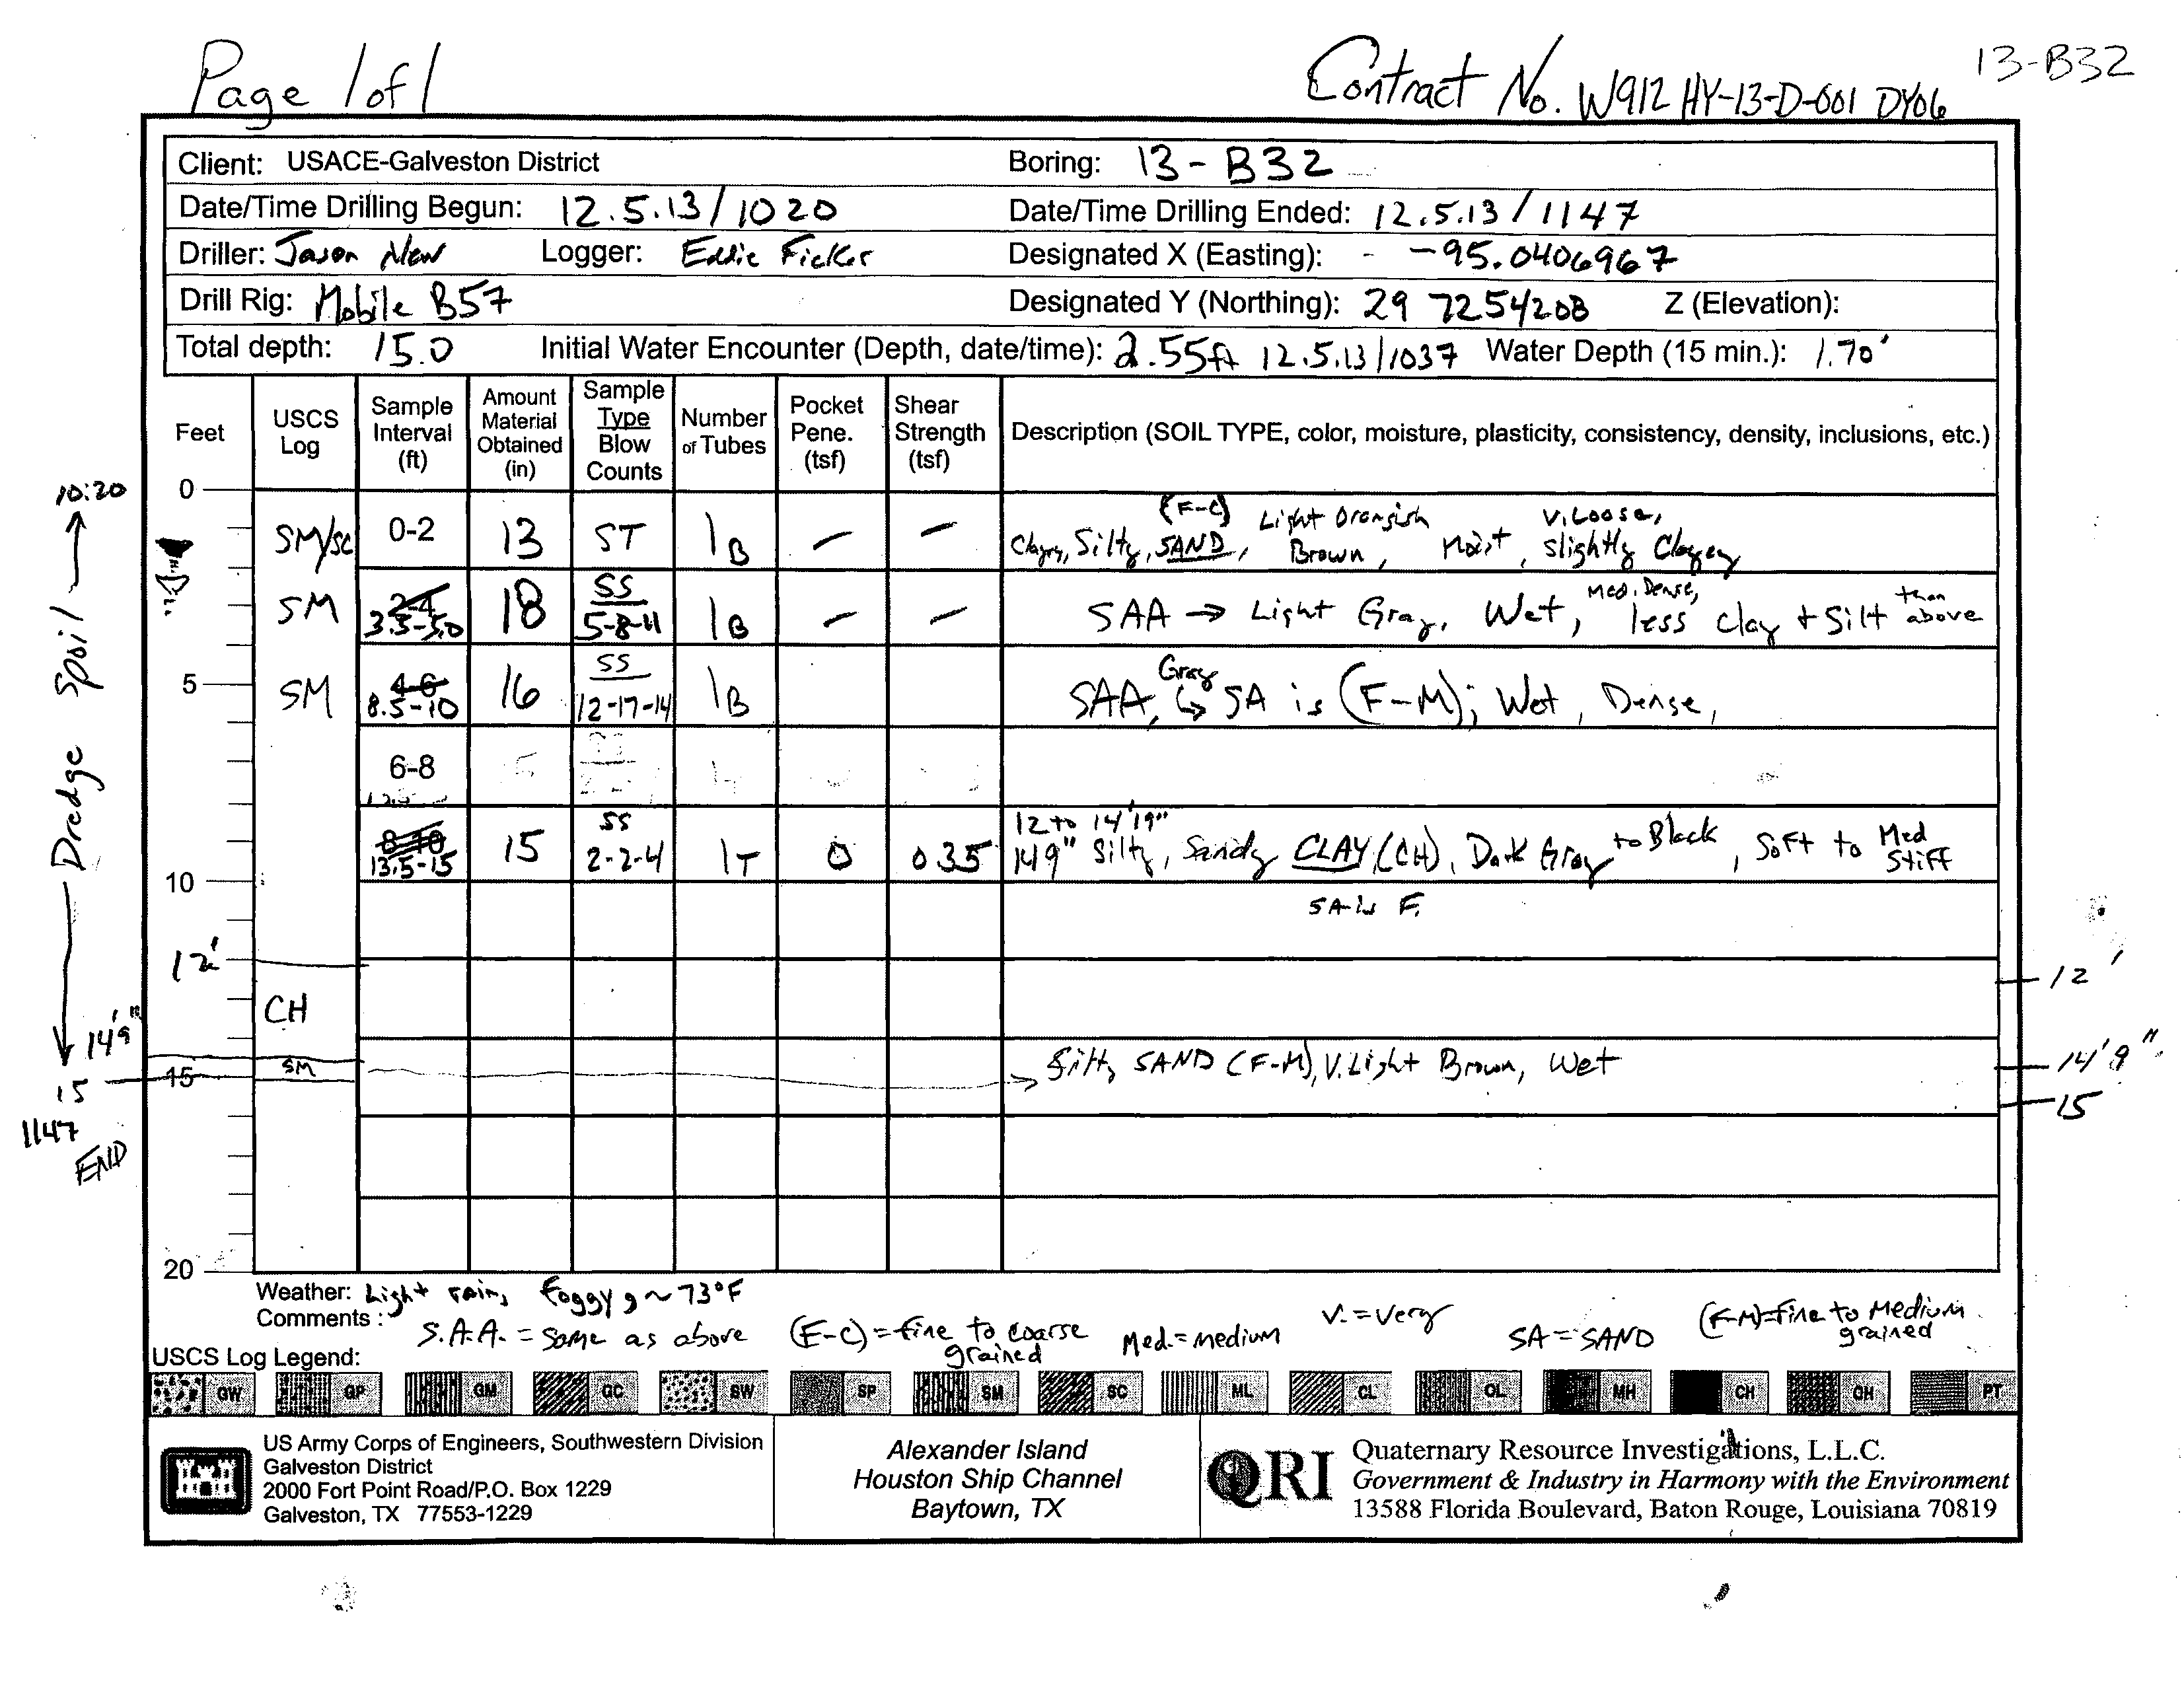 Page 1 of 1
Contract No. W912HY-13-D-001 DY06
13-B32
Client: USACE-Galveston District
Boring: 13-B32
Date/Time Drilling Begun: 12.5.13/1020
Date/Time Drilling Ended: 12.5.13/1147
Driller: Jason New Logger: Eddie Ficker
Designated X (Easting): - -95.0406967
Drill Rig: Mobile B57
Designated Y (Northing): 29 7254208 Z (Elevation):
Total depth: 15.0 Initial Water Encounter (Depth, date/time): 2.55ft 12.5.13/1037 Water Depth (15 min.): 1.70'
Feet
USCS Log
Sample Interval (ft)
Amount Material Obtained (in)
Sample Type Blow Counts
Number of Tubes
Pocket Pene. (tsf)
Shear Strength (tsf)
Description (SOIL TYPE, color, moisture, plasticity, consistency, density, inclusions, etc.)
10:20
Dredge Spoil
0
SM/SC 0-2 13 ST 1B — — Clayey, Silty, SAND, (F-C) Light Orangish Brown, Moist, V. Loose, slightly Clayey
SM 2-4 3.5-5.0 18 SS 5-8-11 1B — — SAA → Light Gray, Wet, Med. Dense, less clay + Silt than above
5
SM 4-6 8.5-10 16 SS 12-17-14 1B SAA, Gray ↳ SA is (F-M); Wet, Dense,
6-8
8-10 13.5-15 15 SS 2-2-4 1T 0 0.35 12 to 14'9"
14'9" Silty, Sandy CLAY, (CH), Dark Gray to Black, Soft to Med Stiff
10
SA is F.
12'
12'
CH
14'9"
SM
Silty SAND (F-M), V. Light Brown, Wet
14'9"
15
15
15
1147
END
20
Weather: Light rain, Foggy, ~73°F
Comments: S.A.A. = Same as above (F-C) = fine to coarse grained Med. = medium V. = Very SA = SAND (F-M) = Fine to Medium grained
USCS Log Legend:
GW GP GM GC SW SP SM SC ML CL OL MH CH OH PT
US Army Corps of Engineers, Southwestern Division
Galveston District
2000 Fort Point Road/P.O. Box 1229
Galveston, TX 77553-1229
Alexander Island
Houston Ship Channel
Baytown, TX
QRI
Quaternary Resource Investigations, L.L.C.
Government & Industry in Harmony with the Environment
13588 Florida Boulevard, Baton Rouge, Louisiana 70819